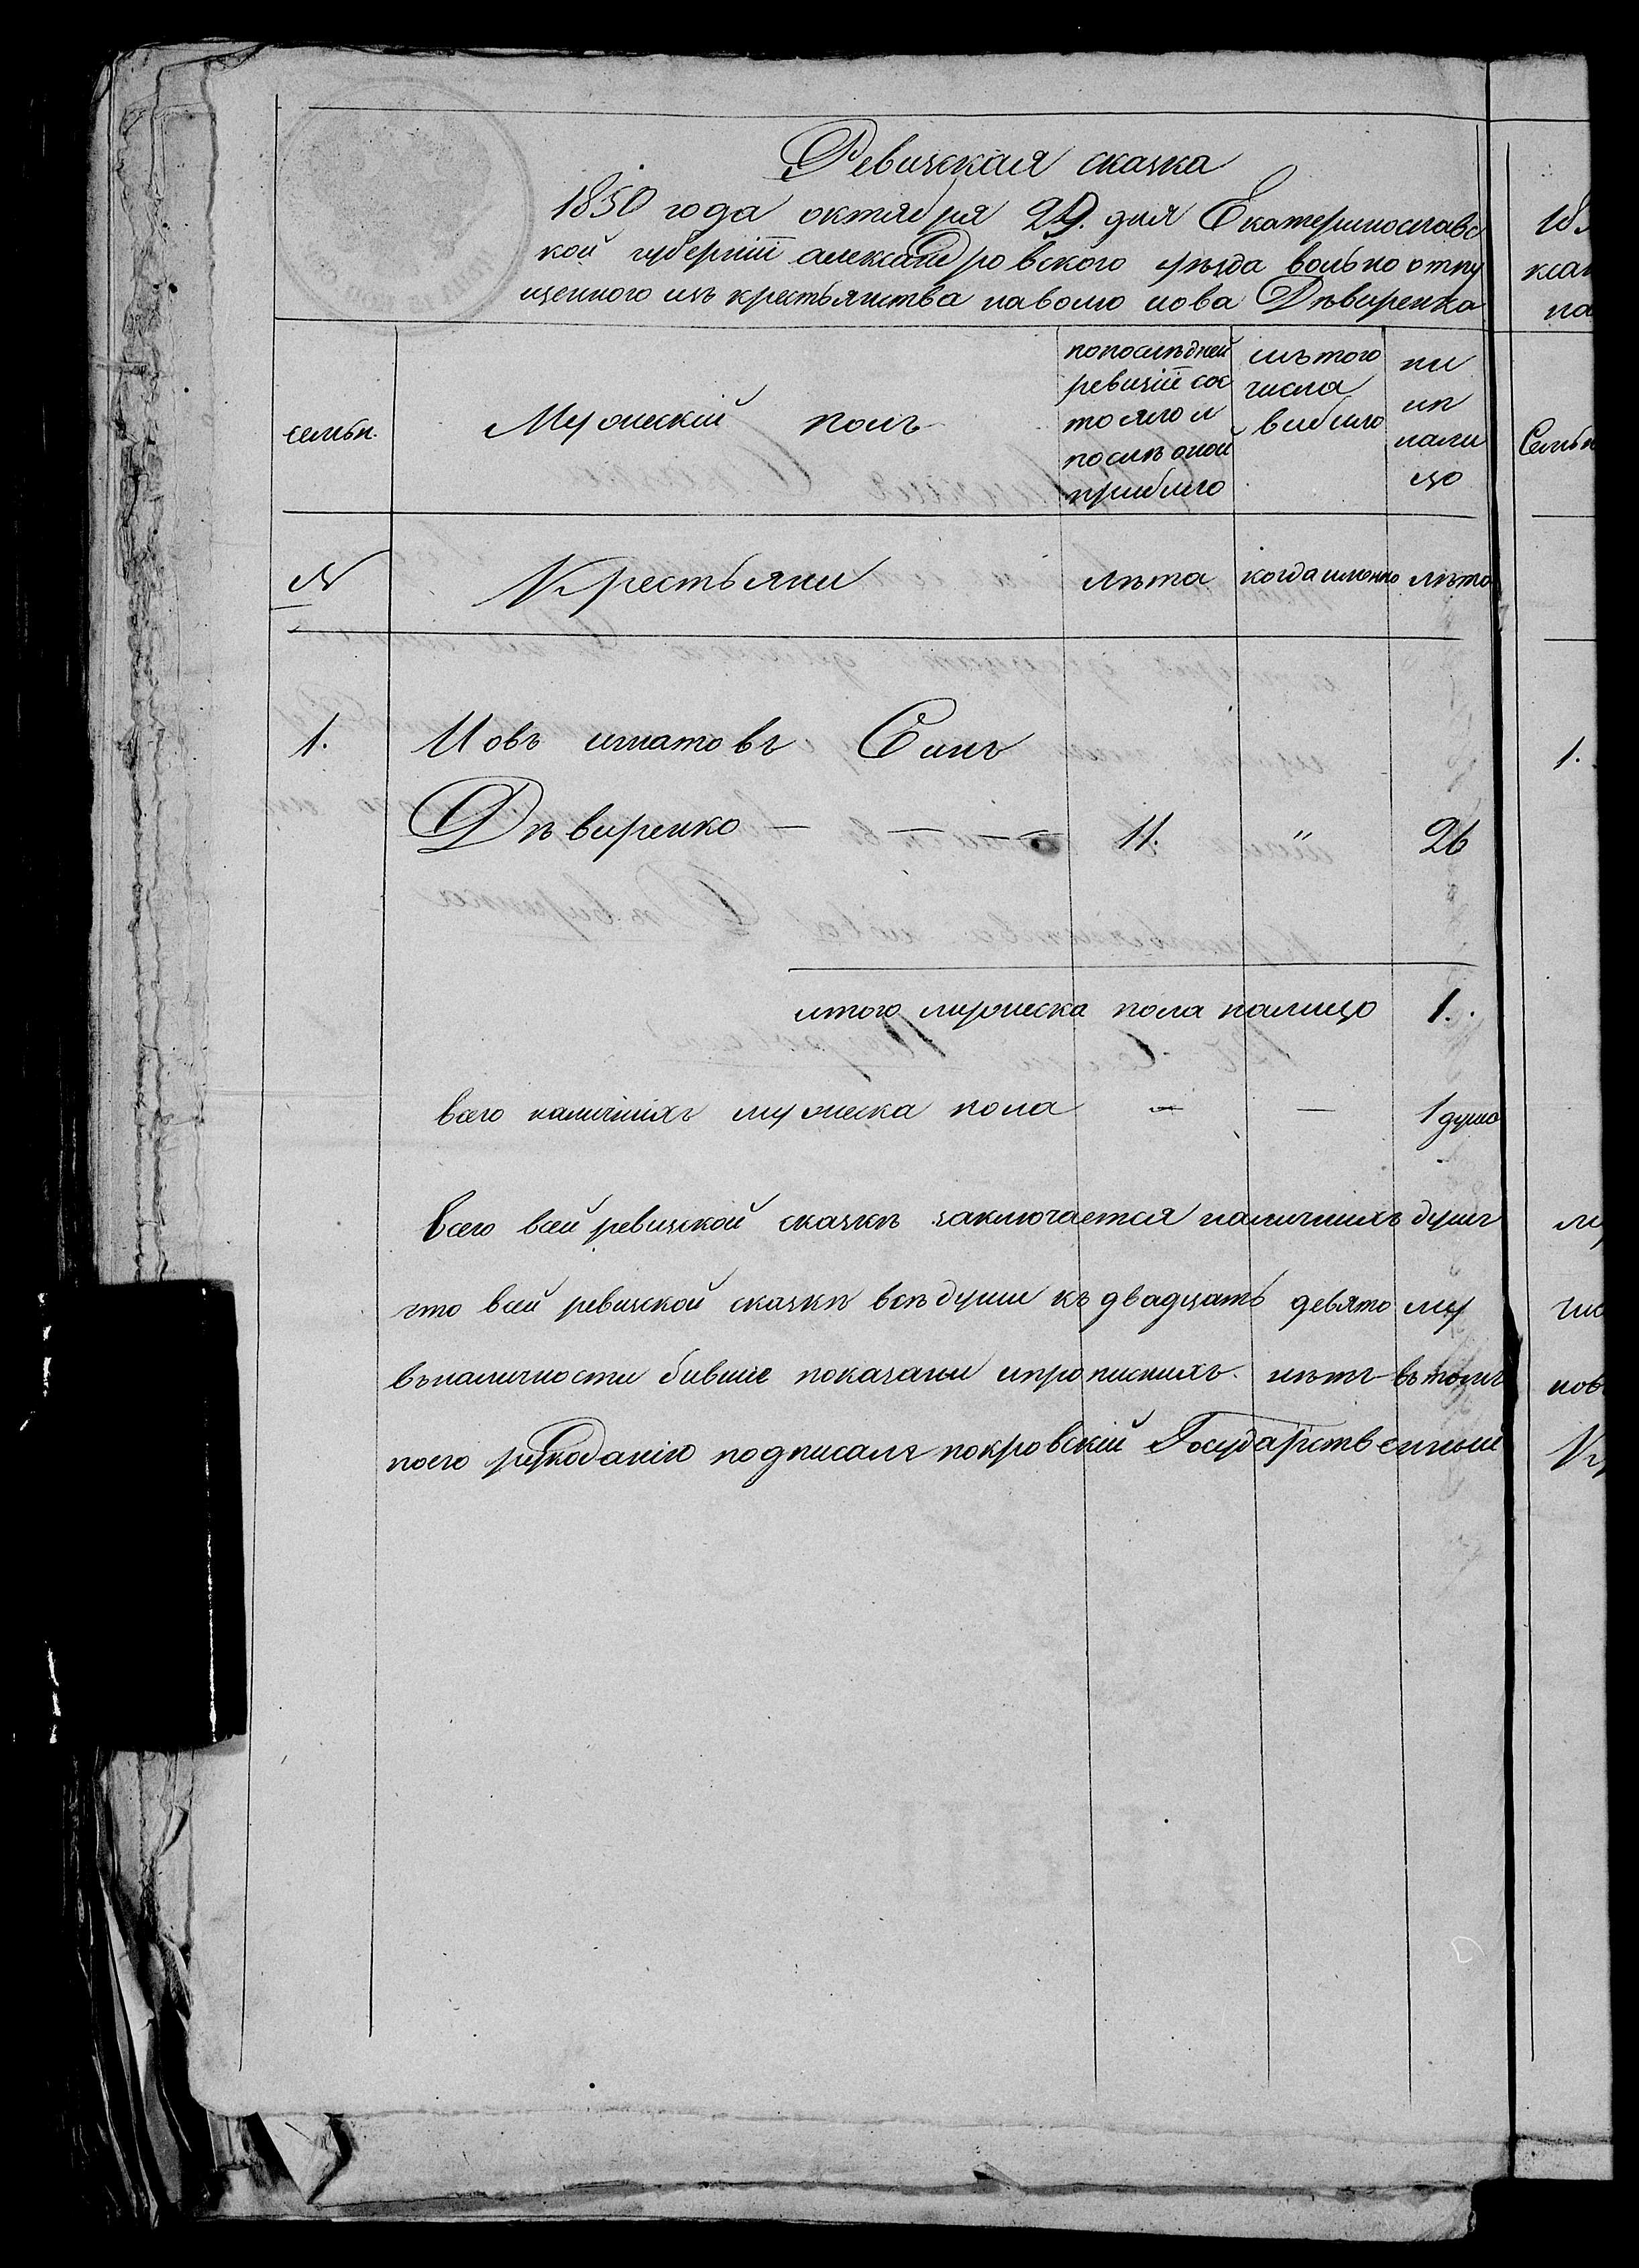 Ревизская сказка
1850 года октября 29. дня Екатеринославс
кой губернїи александровского уѣзда вольно отпу
щенного изъ крестьянства наволю иова Дѣвиренка
семьи.
Мужескій полъ
попослѣдней
ревизіи сос
тояло и
послѣ оной
прибило
изътого
числа
вибило
ни
нп
нали
цо
№
Крестьяни
лѣта
когда имянно
лѣта
1.
Иовъ игнатовъ Синъ
Дѣвиренко — — —
11.
"
26
итого мужеска пола налицо 1.
всего наличнихъ мужеска пола — — 1 душа
всего всей ревизской сказкѣ заключается наличнихъ душъ
что всей ревизской сказкѣ всѣ души къ двадцать девято му
вьналичности бившіе показани ипрописнихъ нѣтъ вьтомъ
поего рукоданію подписалъ покровскій Государственний
18
ксан
на
Семьи
1.
му
чис
нов
Кр